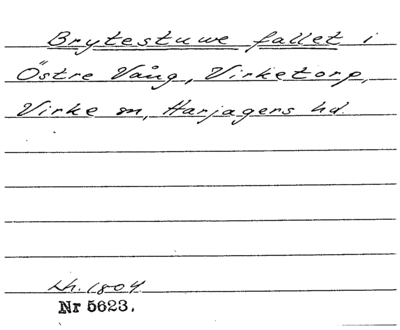 Brytestuwe fallet i
Östre Vång, Virketorp,
Virke sn, Harjagers hd.
Lh. 1804
Nr 5623.